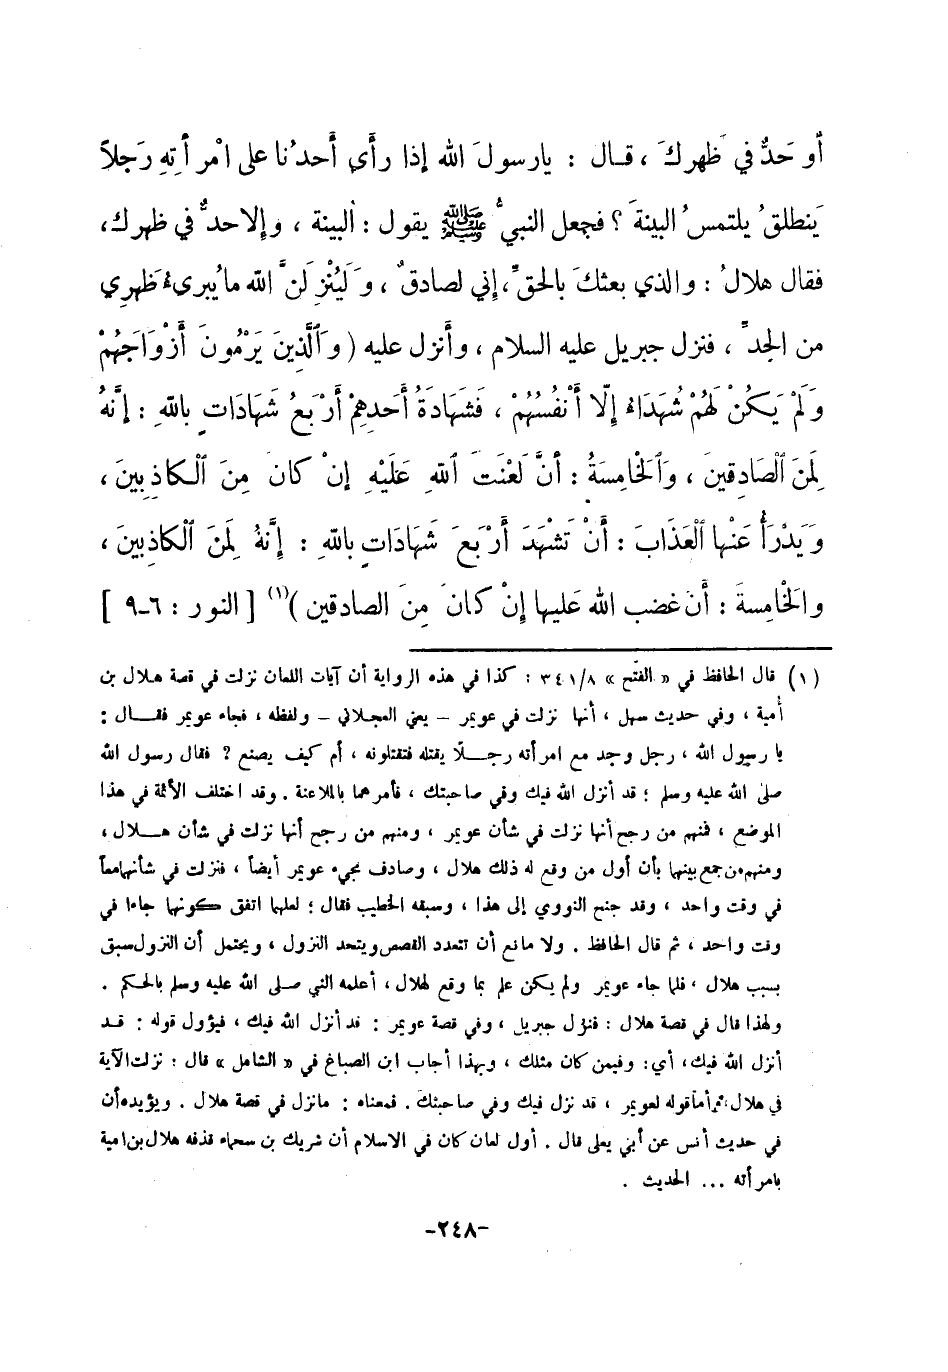 أو حَدٌّ في ظَهرِكَ ، قـال : يارسولَ الله إذا رأَى أحدُنا على امْرأَتِهِ رَجلاً
يَنطلقُ يلتمسُ البينةَ ؟ فجعل النبيُّ ﷺ يقول : ألبينة ، وإلا حدٌّ في ظهرك،
فقال هلالُ : والذي بعثكَ بالحقِّ، إني لصادقٌ ، وَلَيُنْزِلَنَّ الله ما يُبرىءُ ظهرِي
من الحدِّ ، فنزل جبريل عليه السلام ، وأنزل عليه ( وَالَّذِينَ يَرْمُونَ أَزْوَاجَهُمْ
وَلَمْ يَكُنْ لَهُمْ شُهَدَاءُ إِلَّا أَنْفُسُهُمْ ، فَشَهَادَةُ أَحَدِهِمْ أَرْبَعُ شَهَادَاتٍ بِاللهِ : إِنَّهُ
لَمِنَ الصَّادِقِينَ ، وَالخَامِسَةُ : أَنَّ لَعْنَتَ اللهِ عَلَيْهِ إِنْ كانَ مِنَ الكَاذِبِينَ ،
وَيَدْرَأُ عَنْها العَذَابَ : أَنْ تَشْهَدَ أَرْبَعَ شَهَادَاتٍ بِاللهِ : إِنَّهُ لَمِنَ الكَاذِبِينَ ،
والخَامِسةَ : أَن غضب الله عَليها إِنْ كانَ مِنَ الصادقين )(١) [ النور : ٦ـ٩ ]
(١) قال الحافظ في « الفتح » ٣٤١/٨ : كذا في هذه الرواية أن آيات اللعان نزلت في قصة هلال بن
أمية ، وفي حديث سهل ، أنها نزلت في عويمر – يعني العجلاني – ولفظه ، فجاء عويمر فقـال :
يا رسول الله ، رجل وجد مع امرأته رجـلًا يقتله فتقتلونه ، أم كيف يصنع ? فقال رسول الله
صلى الله عليه وسلم : قد أنزل الله فيك وفي صاحبتك ، فأمرهما بالملاعنة . وقد اختلف الأئمة في هذا
الموضع ، فمنهم من رجح أنها نزلت في شأن عويمر ، ومنهم من رجح أنها نزلت في شأن هـلال ،
ومنهم من جمع بينهما بأن أول من وقع له ذلك هلال ، وصادف مجيء عويمر أيضاً ، فنزلت في شأنهما معاً
في وقت واحد ، وقد جنح النووي إلى هذا ، وسبقه الخطيب فقال : لعلهما اتفق كونهما جاءا في
وقت واحد ، ثم قال الحافظ . ولا مانع أن تتعدد القصص ويتحد النزول ، ويحتمل أن النزول سبق
بسبب هلال ، فلما جاء عويمر ولم يكن علم بما وقع لهلال ، أعلمه النبي صلى الله عليه وسلم بالحكم .
ولهذا قال في قصة هلال : فنزل جبريل ، وفي قصة عويمر : قد أنزل الله فيك ، فيؤول قوله : قـد
أنزل الله فيك، أي: وفيمن كان مثلك ، وبهذا أجاب ابن الصباغ في « الشامل » قال : نزلت الآية
في هلال، وأما قوله لعويمر ، قد نزل فيك وفي صاحبتك . فمعناه : مانزل في قصة هلال . ويؤيده أن
في حديث أنس عن أبي يعلى قال . أول لعان كان في الاسلام أن شريك بن سحماء قذفه هلال بن امية
بامرأته ... الحديث .
-٢٤٨-